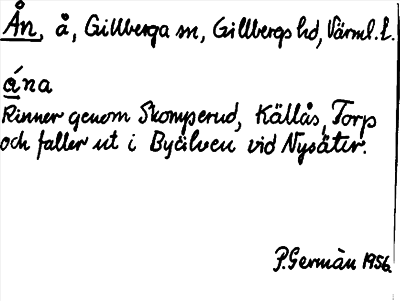 Ån, å, Gillberga sn, Gillbergs hd, Värml. l.
ána
Rinner genom Skomperud, Källås, Torp
och faller ut i Byälven vid Nysäter.
P. Germán 1956.